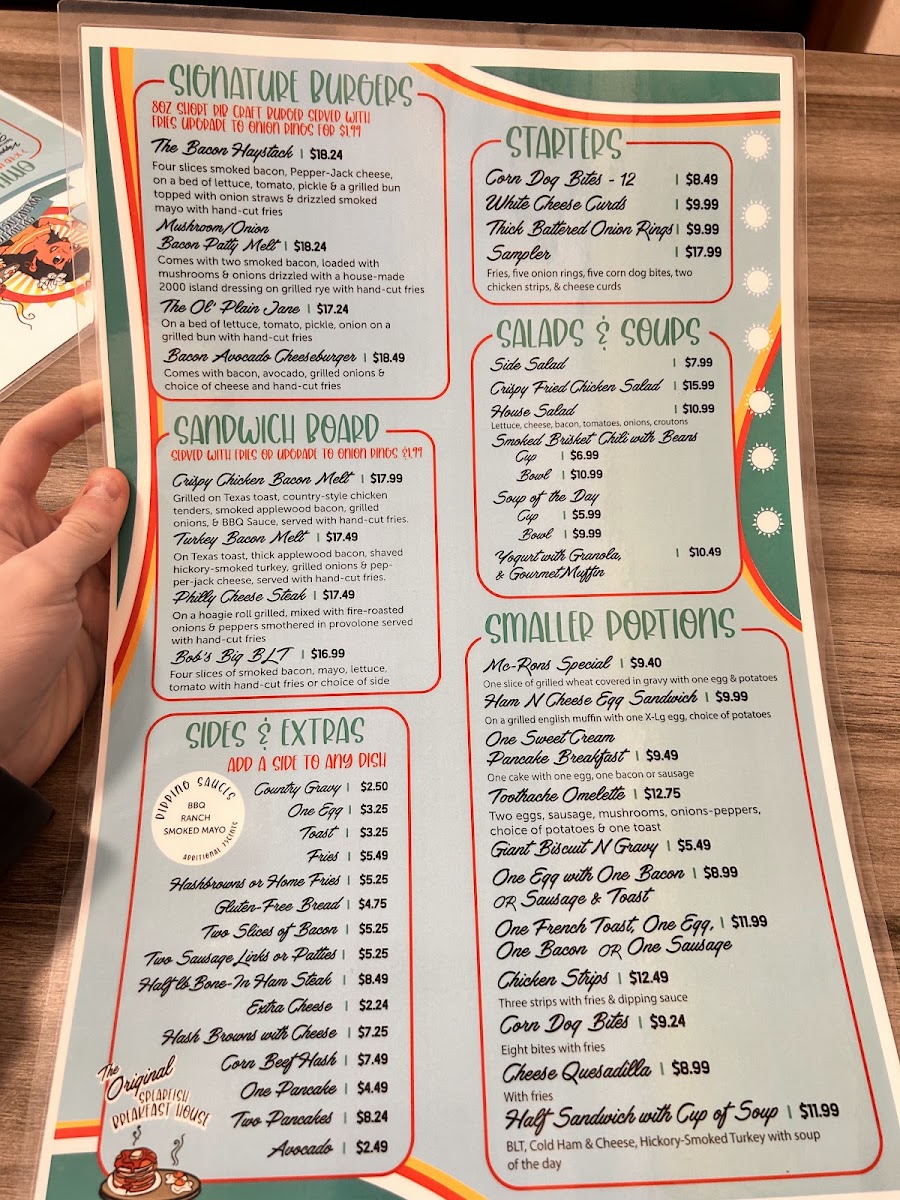 SIGNATURE BURGERS
8OZ SHORT RIB CRAFT BURGER SERVED WITH
FRIES UPGRADE TO ONION RINGS FOR $1.99
The Bacon Haystack | $18.24
Four slices smoked bacon, Pepper-Jack cheese,
on a bed of lettuce, tomato, pickle & a grilled bun
topped with onion straws & drizzled smoked
mayo with hand-cut fries
Mushroom/Onion
Bacon Patty Melt | $18.24
Comes with two smoked bacon, loaded with
mushrooms & onions drizzled with a house-made
2000 island dressing on grilled rye with hand-cut fries
The Ol' Plain Jane | $17.24
On a bed of lettuce, tomato, pickle, onion on a
grilled bun with hand-cut fries
Bacon Avocado Cheeseburger | $18.49
Comes with bacon, avocado, grilled onions &
choice of cheese and hand-cut fries
SANDWICH BOARD
SERVED WITH FRIES OR UPGRADE TO ONION RINGS $1.99
Crispy Chicken Bacon Melt | $17.99
Grilled on Texas toast, country-style chicken
tenders, smoked applewood bacon, grilled
onions, & BBQ Sauce, served with hand-cut fries.
Turkey Bacon Melt | $17.49
On Texas toast, thick applewood bacon, shaved
hickory-smoked turkey, grilled onions & pep-
per-jack cheese, served with hand-cut fries.
Philly Cheese Steak | $17.49
On a hoagie roll grilled, mixed with fire-roasted
onions & peppers smothered in provolone served
with hand-cut fries
Bob's Big BLT | $16.99
Four slices of smoked bacon, mayo, lettuce,
tomato with hand-cut fries or choice of side
SIDES & EXTRAS
ADD A SIDE TO ANY DISH
DIPPING SAUCES
BBQ
RANCH
SMOKED MAYO
Country Gravy | $2.50
One Egg | $3.25
Toast | $3.25
Fries | $5.49
Hashbrowns or Home Fries | $5.25
Gluten-Free Bread | $4.75
Two Slices of Bacon | $5.25
Two Sausage Links or Patties | $5.25
Half lb Bone-In Ham Steak | $8.49
Extra Cheese | $2.24
Hash Browns with Cheese | $7.25
Corn Beef Hash | $7.49
One Pancake | $4.49
Two Pancakes | $8.24
Avocado | $2.49
The
Original
SPEARFISH
BREAKFAST HOUSE
STARTERS
Corn Dog Bites - 12 | $8.49
White Cheese Curds | $9.99
Thick Battered Onion Rings | $9.99
Sampler | $17.99
Fries, five onion rings, five corn dog bites, two
chicken strips, & cheese curds
SALADS & SOUPS
Side Salad | $7.99
Crispy Fried Chicken Salad | $15.99
House Salad | $10.99
Lettuce, cheese, bacon, tomatoes, onions, croutons
Smoked Brisket Chili with Beans
Cup | $6.99
Bowl | $10.99
Soup of the Day
Cup | $5.99
Bowl | $9.99
Yogurt with Granola, | $10.49
& Gourmet Muffin
SMALLER PORTIONS
Mc-Rons Special | $9.40
One slice of grilled wheat covered in gravy with one egg & potatoes
Ham N Cheese Egg Sandwich | $9.99
On a grilled english muffin with one X-Lg egg, choice of potatoes
One Sweet Cream
Pancake Breakfast | $9.49
One cake with one egg, one bacon or sausage
Toothache Omelette | $12.75
Two eggs, sausage, mushrooms, onions-peppers,
choice of potatoes & one toast
Giant Biscuit N Gravy | $5.49
One Egg with One Bacon | $8.99
OR Sausage & Toast
One French Toast, One Egg, | $11.99
One Bacon OR One Sausage
Chicken Strips | $12.49
Three strips with fries & dipping sauce
Corn Dog Bites | $9.24
Eight bites with fries
Cheese Quesadilla | $8.99
With fries
Half Sandwich with Cup of Soup | $11.99
BLT, Cold Ham & Cheese, Hickory-Smoked Turkey with soup
of the day